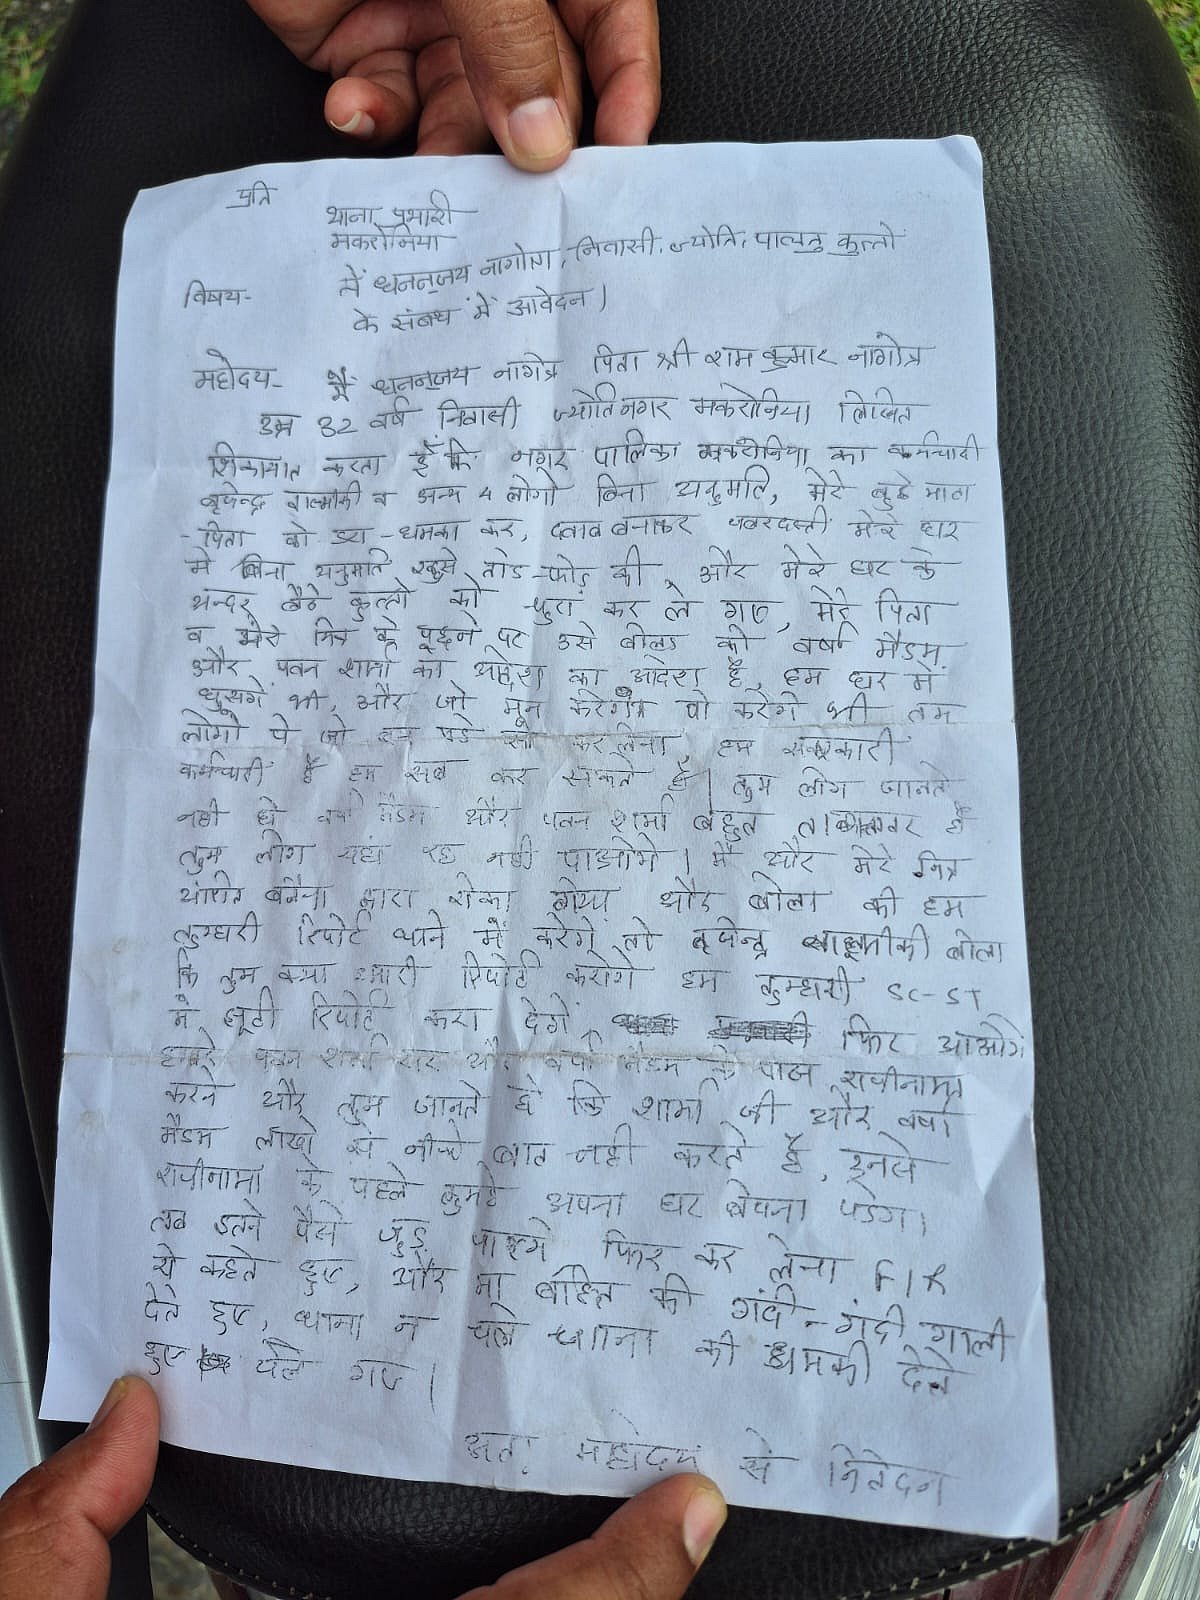 प्रति
थाना प्रभारी
मकरोनिया
विषय- में धननन्जय नागोत्रा, निवासी, ज्योति, पालतु कुत्तो
के संबध में आवेदन।
महोदय- मैं धननन्जय नागोत्र पिता श्री राम कुमार नागोत्र
उम्र 32 वर्ष निवासी ज्योतिनगर मकरोनिया लिखित
शिकायात करता हूँ कि नगर पालिका मकरोनिया का कर्मचारी
बृपेन्द्र वाल्मीकी व अन्य 4 लोगो बिना अनुमति, मेरे बुढे माता
-पिता को डरा-धमका कर, दबाव बनाकर जबरदस्ती मेरे घर
मे बिना अनुमति घुसे तोड-फोड़ की, और मेरे घर के
अन्दर बैठे कुत्तो को चुरा कर ले गए, मेरे पिता
व मेरे मित्र के पूछने पर उसे बोला की वर्षा मैडम
और पवन शर्मा का आदेश का आदेश है, हम घर में
घुसगें भी, और जो मन करेगा वो करेगे भी तुम
लोगो पे जो बन पडे सो कर लेना, हम सरकारी
कर्मचारी है हम सब कर सकते है। तुम लोग जानते
नही हो वर्षा मैडम और पवन शर्मा बहुत ताकतवर है
तुम लोग यहां रह नही पाओगे। मै और मेरे मित्र
द्वारा रोका गया और बोला की हम
तुम्हारी रिपोर्ट थाने में करेगे तो बृपेन्द्र वाल्मीकी बोला
कि तुम क्या हमारी रिपोर्ट करोगे हम तुम्हारी SC-ST
में झूटी रिपोर्ट करा देगें, फिर आओगे
हमारे पवन शर्मा सर और वर्षा मैडम के पास राजीनामा
करने और तुम जानते हो कि शर्मा जी और वर्षा
मैडम लाखो से नीचे बात नही करते है, इनसे
राजीनामा के पहले तुम्हे अपना घर बेचना पडेगा।
तब इतने पैसे जुड़ पाएगे फिर कर लेना FIR
ये कहते हुए, और मा बहिन की गंदी-गंदी गाली
देते हुए, थाना न चले जाना की धमकी देते
हुए चले गए।
अतः महोदय से निवेदन